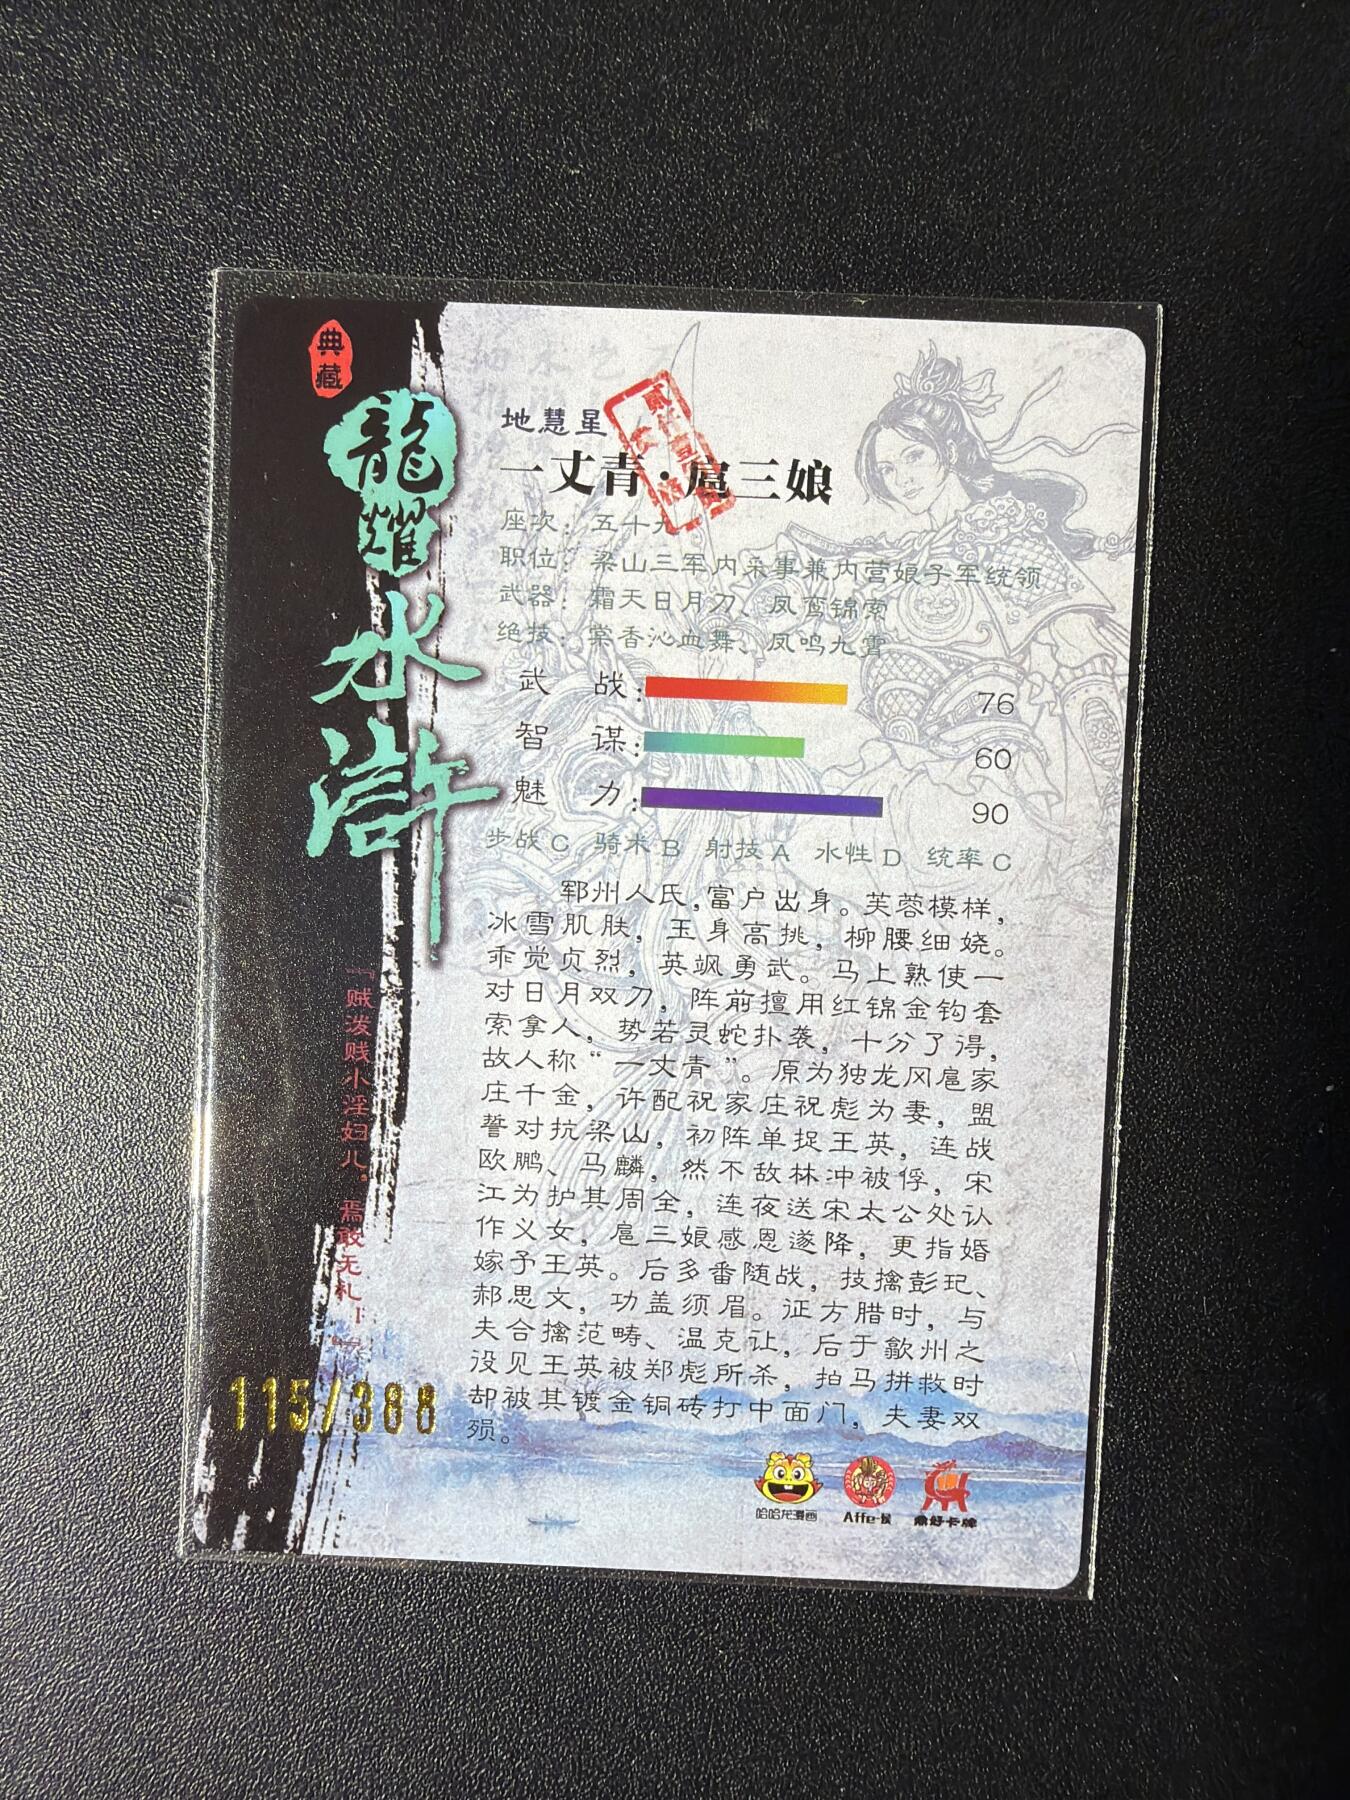 典藏
龍耀水滸
地慧星
一丈青·扈三娘
座次：五十九
职位：梁山三军内采事兼内营娘子军统领
武器：霜天日月刀、凤鸾锦索
绝技：棠香沁血舞、凤鸣九霄
武 战： 76
智 谋： 60
魅 力： 90
步战C 骑术B 射技A 水性D 统率C
郓州人氏，富户出身。芙蓉模样，
冰雪肌肤，玉身高挑，柳腰细娆。
乖觉贞烈，英飒勇武。马上熟使一
对日月双刀，阵前擅用红锦金钩套
索拿人，势若灵蛇扑袭，十分了得，
故人称“一丈青”。原为独龙冈扈家
庄千金，许配祝家庄祝彪为妻，盟
誓对抗梁山，初阵单捉王英，连战
欧鹏、马麟，然不敌林冲被俘，宋
江为护其周全，连夜送宋太公处认
作义女，扈三娘感恩遂降，更指婚
嫁予王英。后多番随战，技擒彭玘、
郝思文，功盖须眉。征方腊时，与
夫合擒范畴、温克让，后于歙州之
没见王英被郑彪所杀，拍马拼救时
却被其镀金铜砖打中面门，夫妻双
殒。
『贼泼贱小淫妇儿，焉敢无礼！』
115/388
哈哈龙漫画
Affe·侯
鼎好卡牌